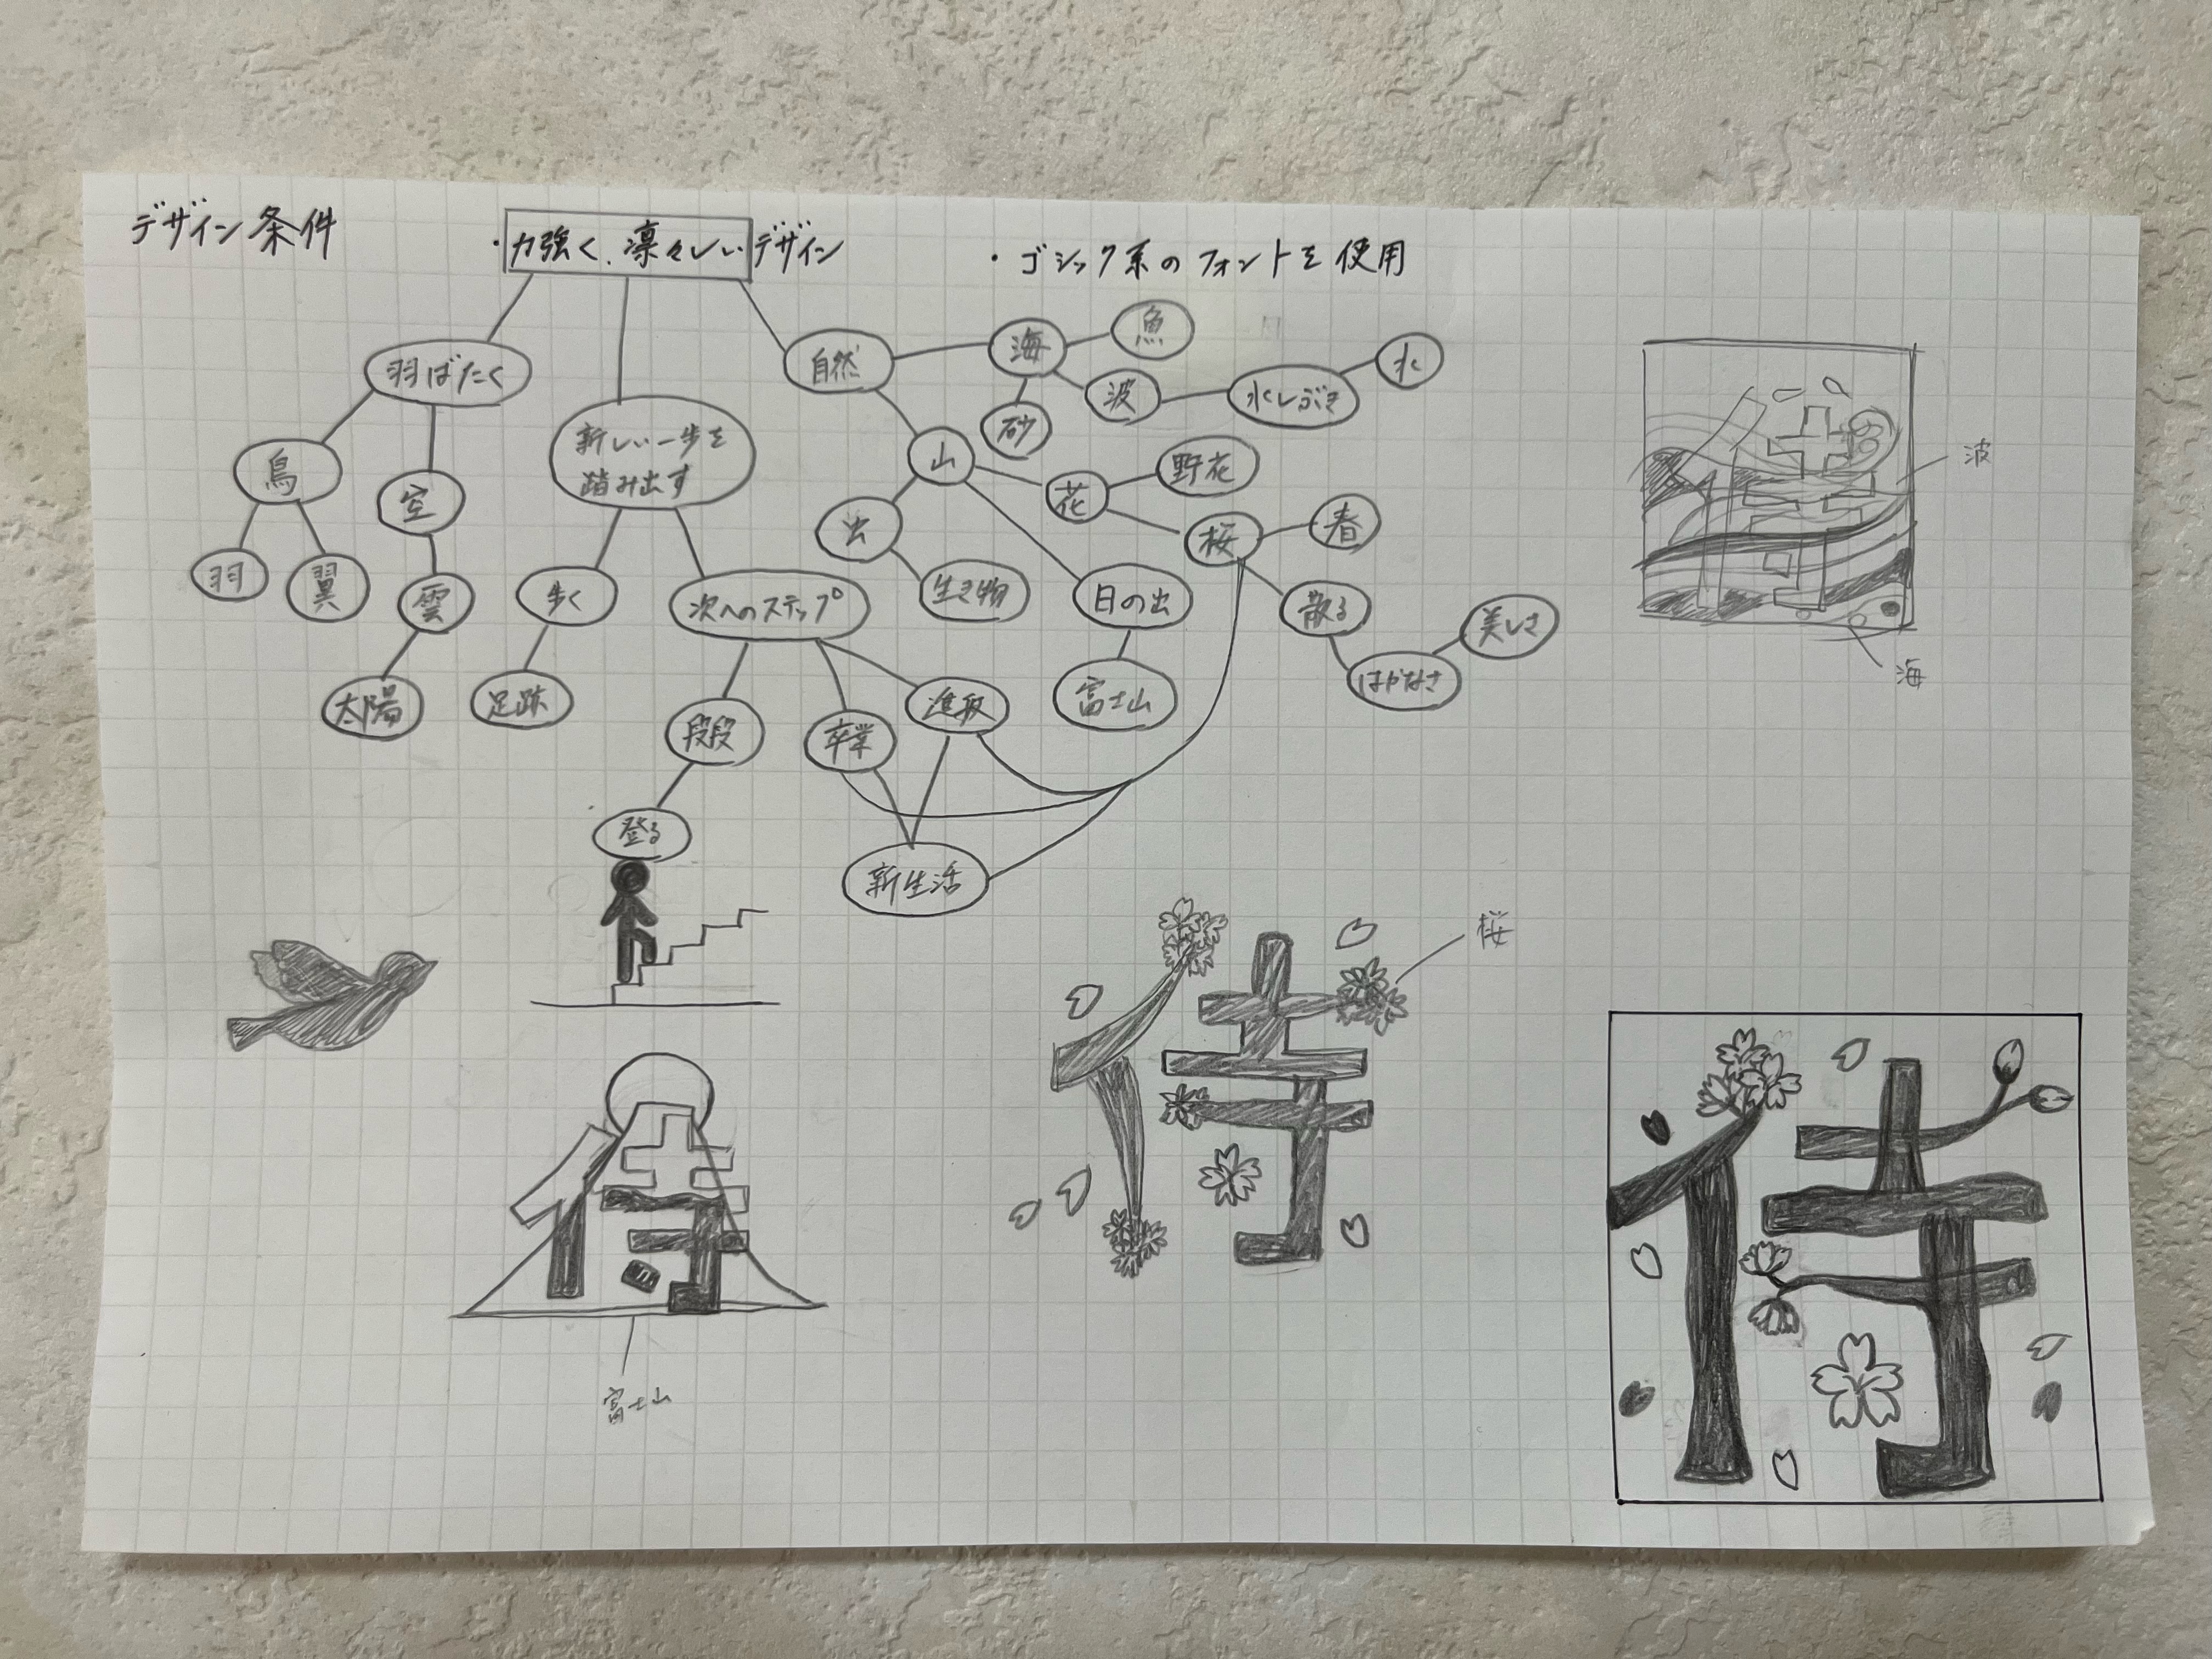 デザイン条件
・力強く、凛々しいデザイン
・ゴシック系のフォントを使用
羽ばたく
鳥
羽
翼
空
雲
太陽
新しい一歩を
踏み出す
歩く
足跡
次へのステップ
段段
登る
卒業
進取
新生活
自然
海
魚
砂
波
水しぶき
水
山
虫
生き物
花
野花
桜
春
散る
はかなさ
美しさ
日の出
富士山
波
海
桜
侍
侍
侍
富士山
侍